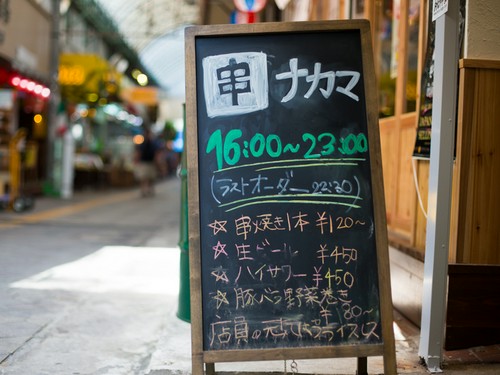 串 ナカマ
16:00~23:00
(ラストオーダー 22:30)
☆串焼き1本 ¥120~
☆生ビール ¥450
☆ハイサワー ¥450
☆豚バラ野菜巻き
¥ 80~
店員の